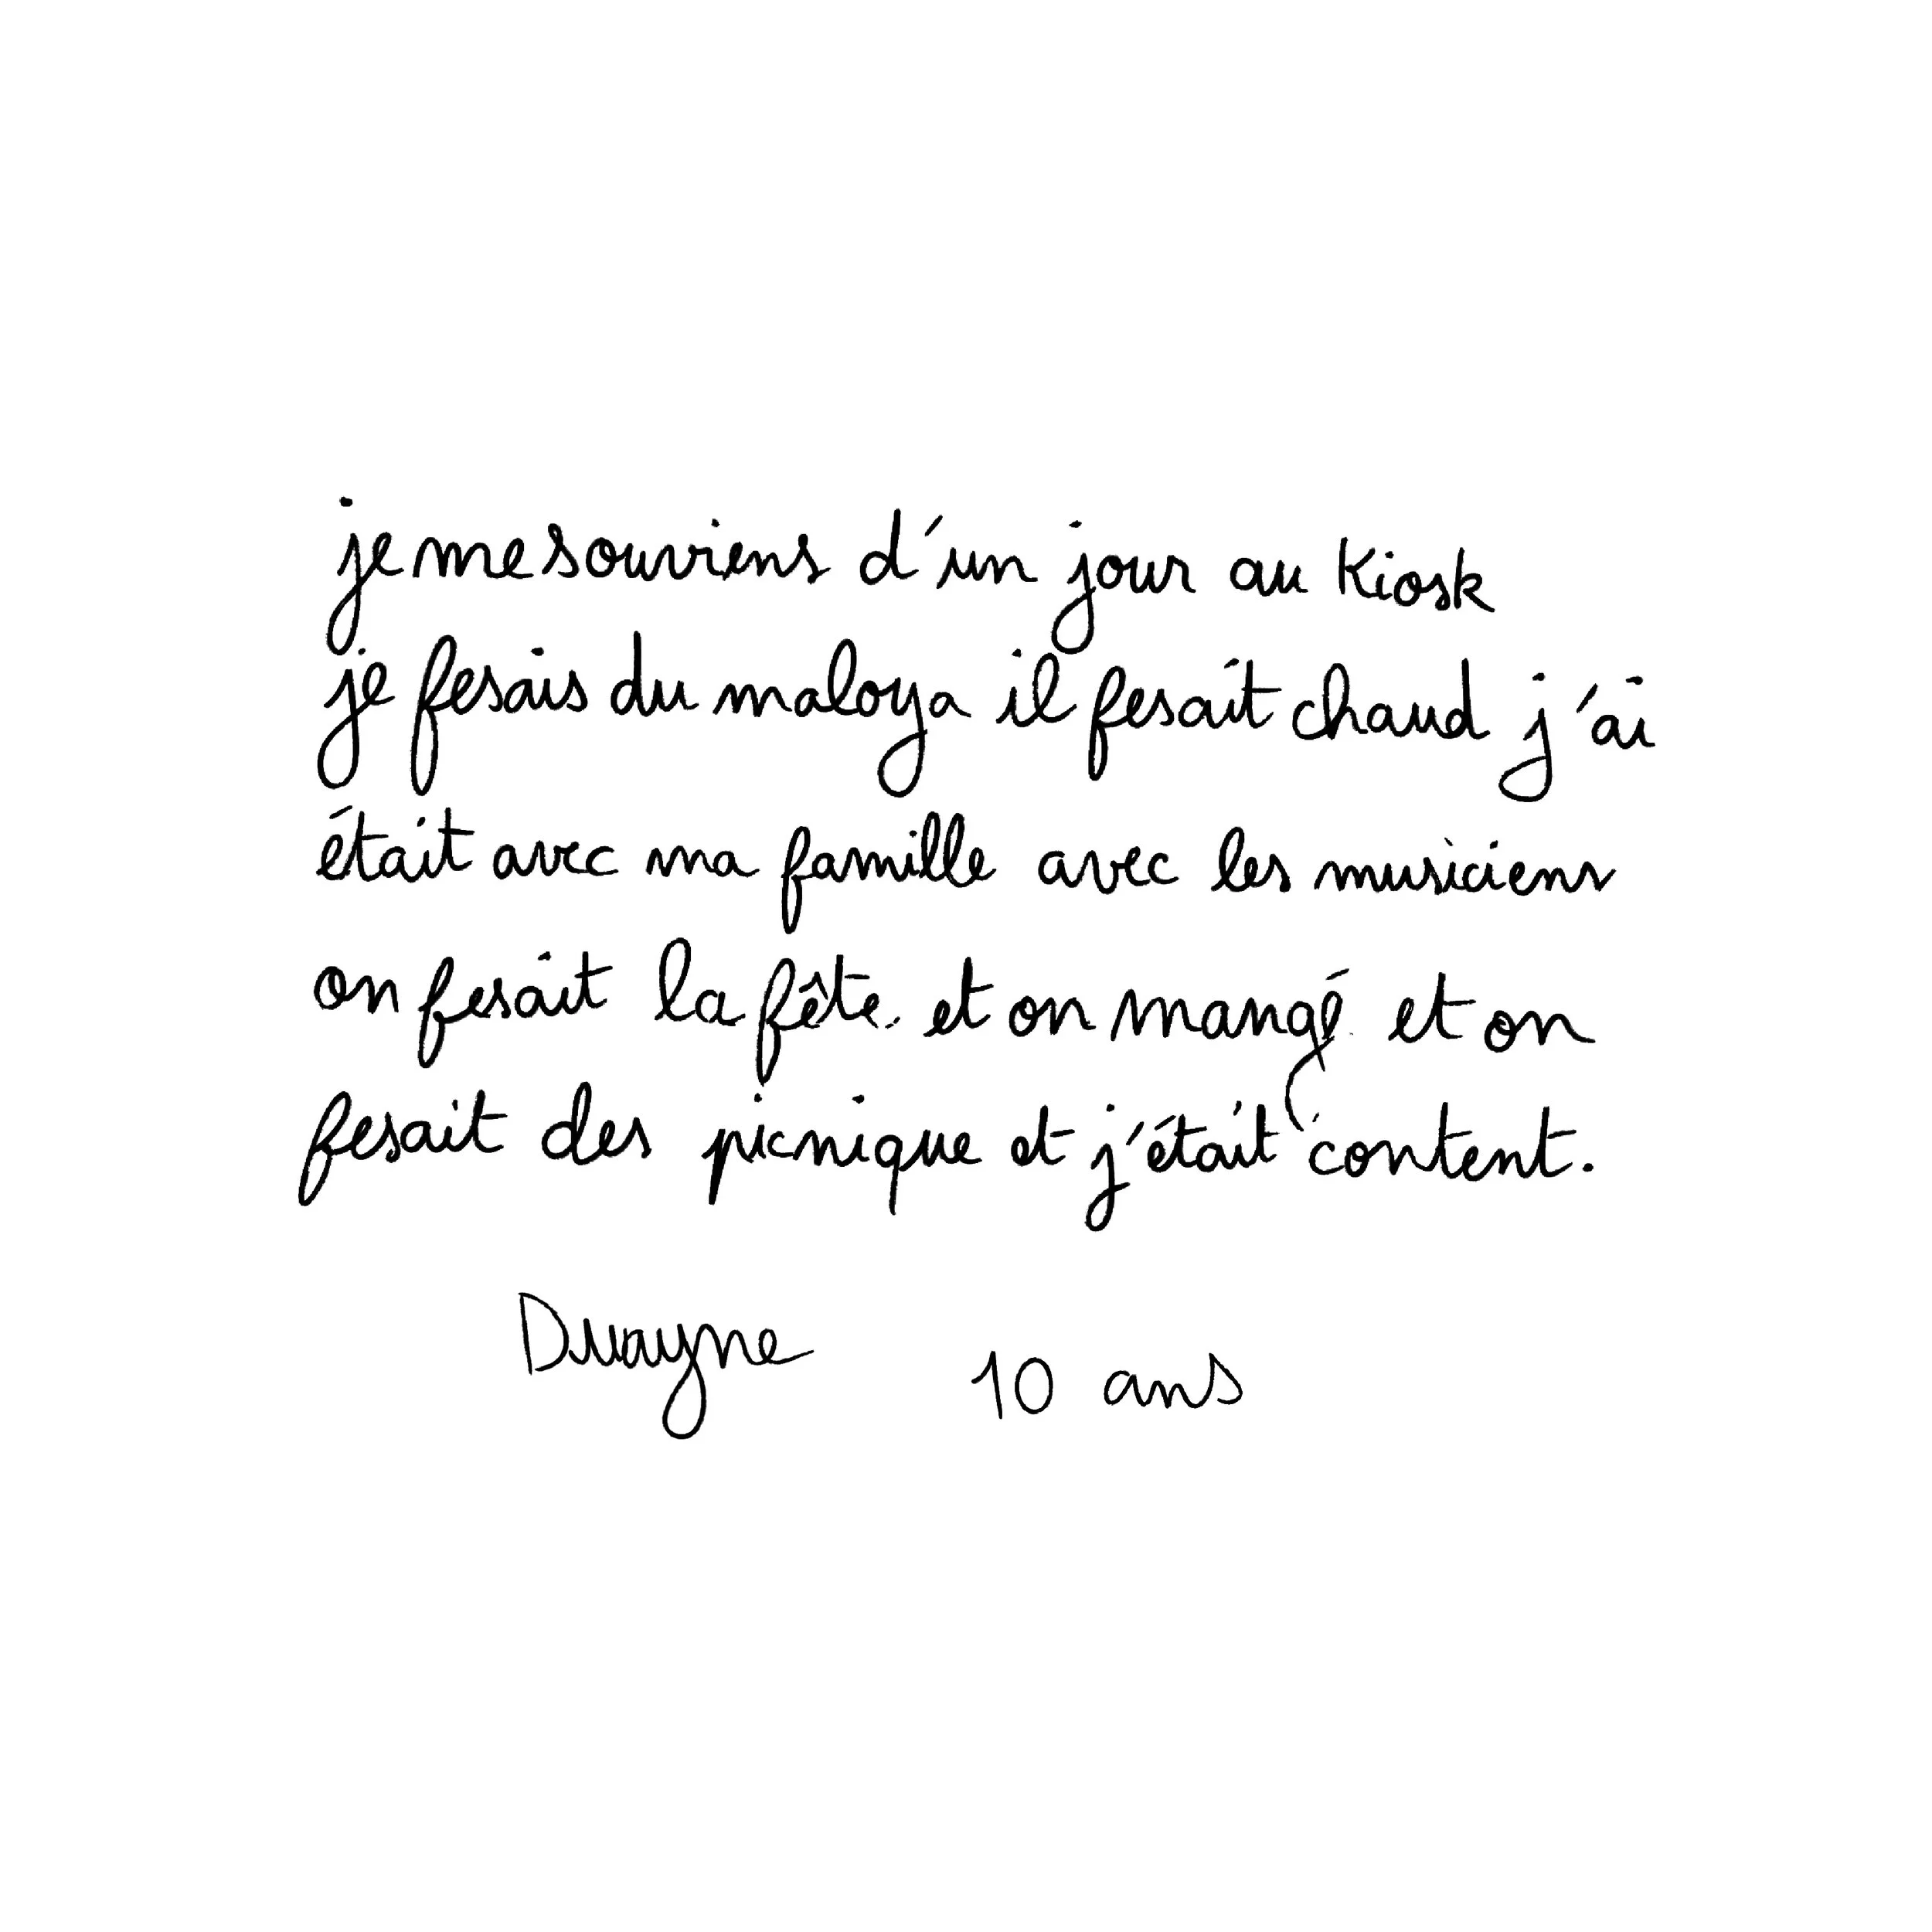 je me souviens d'un jour au Kiosk
je fesais du maloya il fesait chaud j'ai
était avec ma famille avec les musiciens
on fesait la fête. et on mangé. et on
fesait des picnique et j'était content.
Dwayne 10 ans